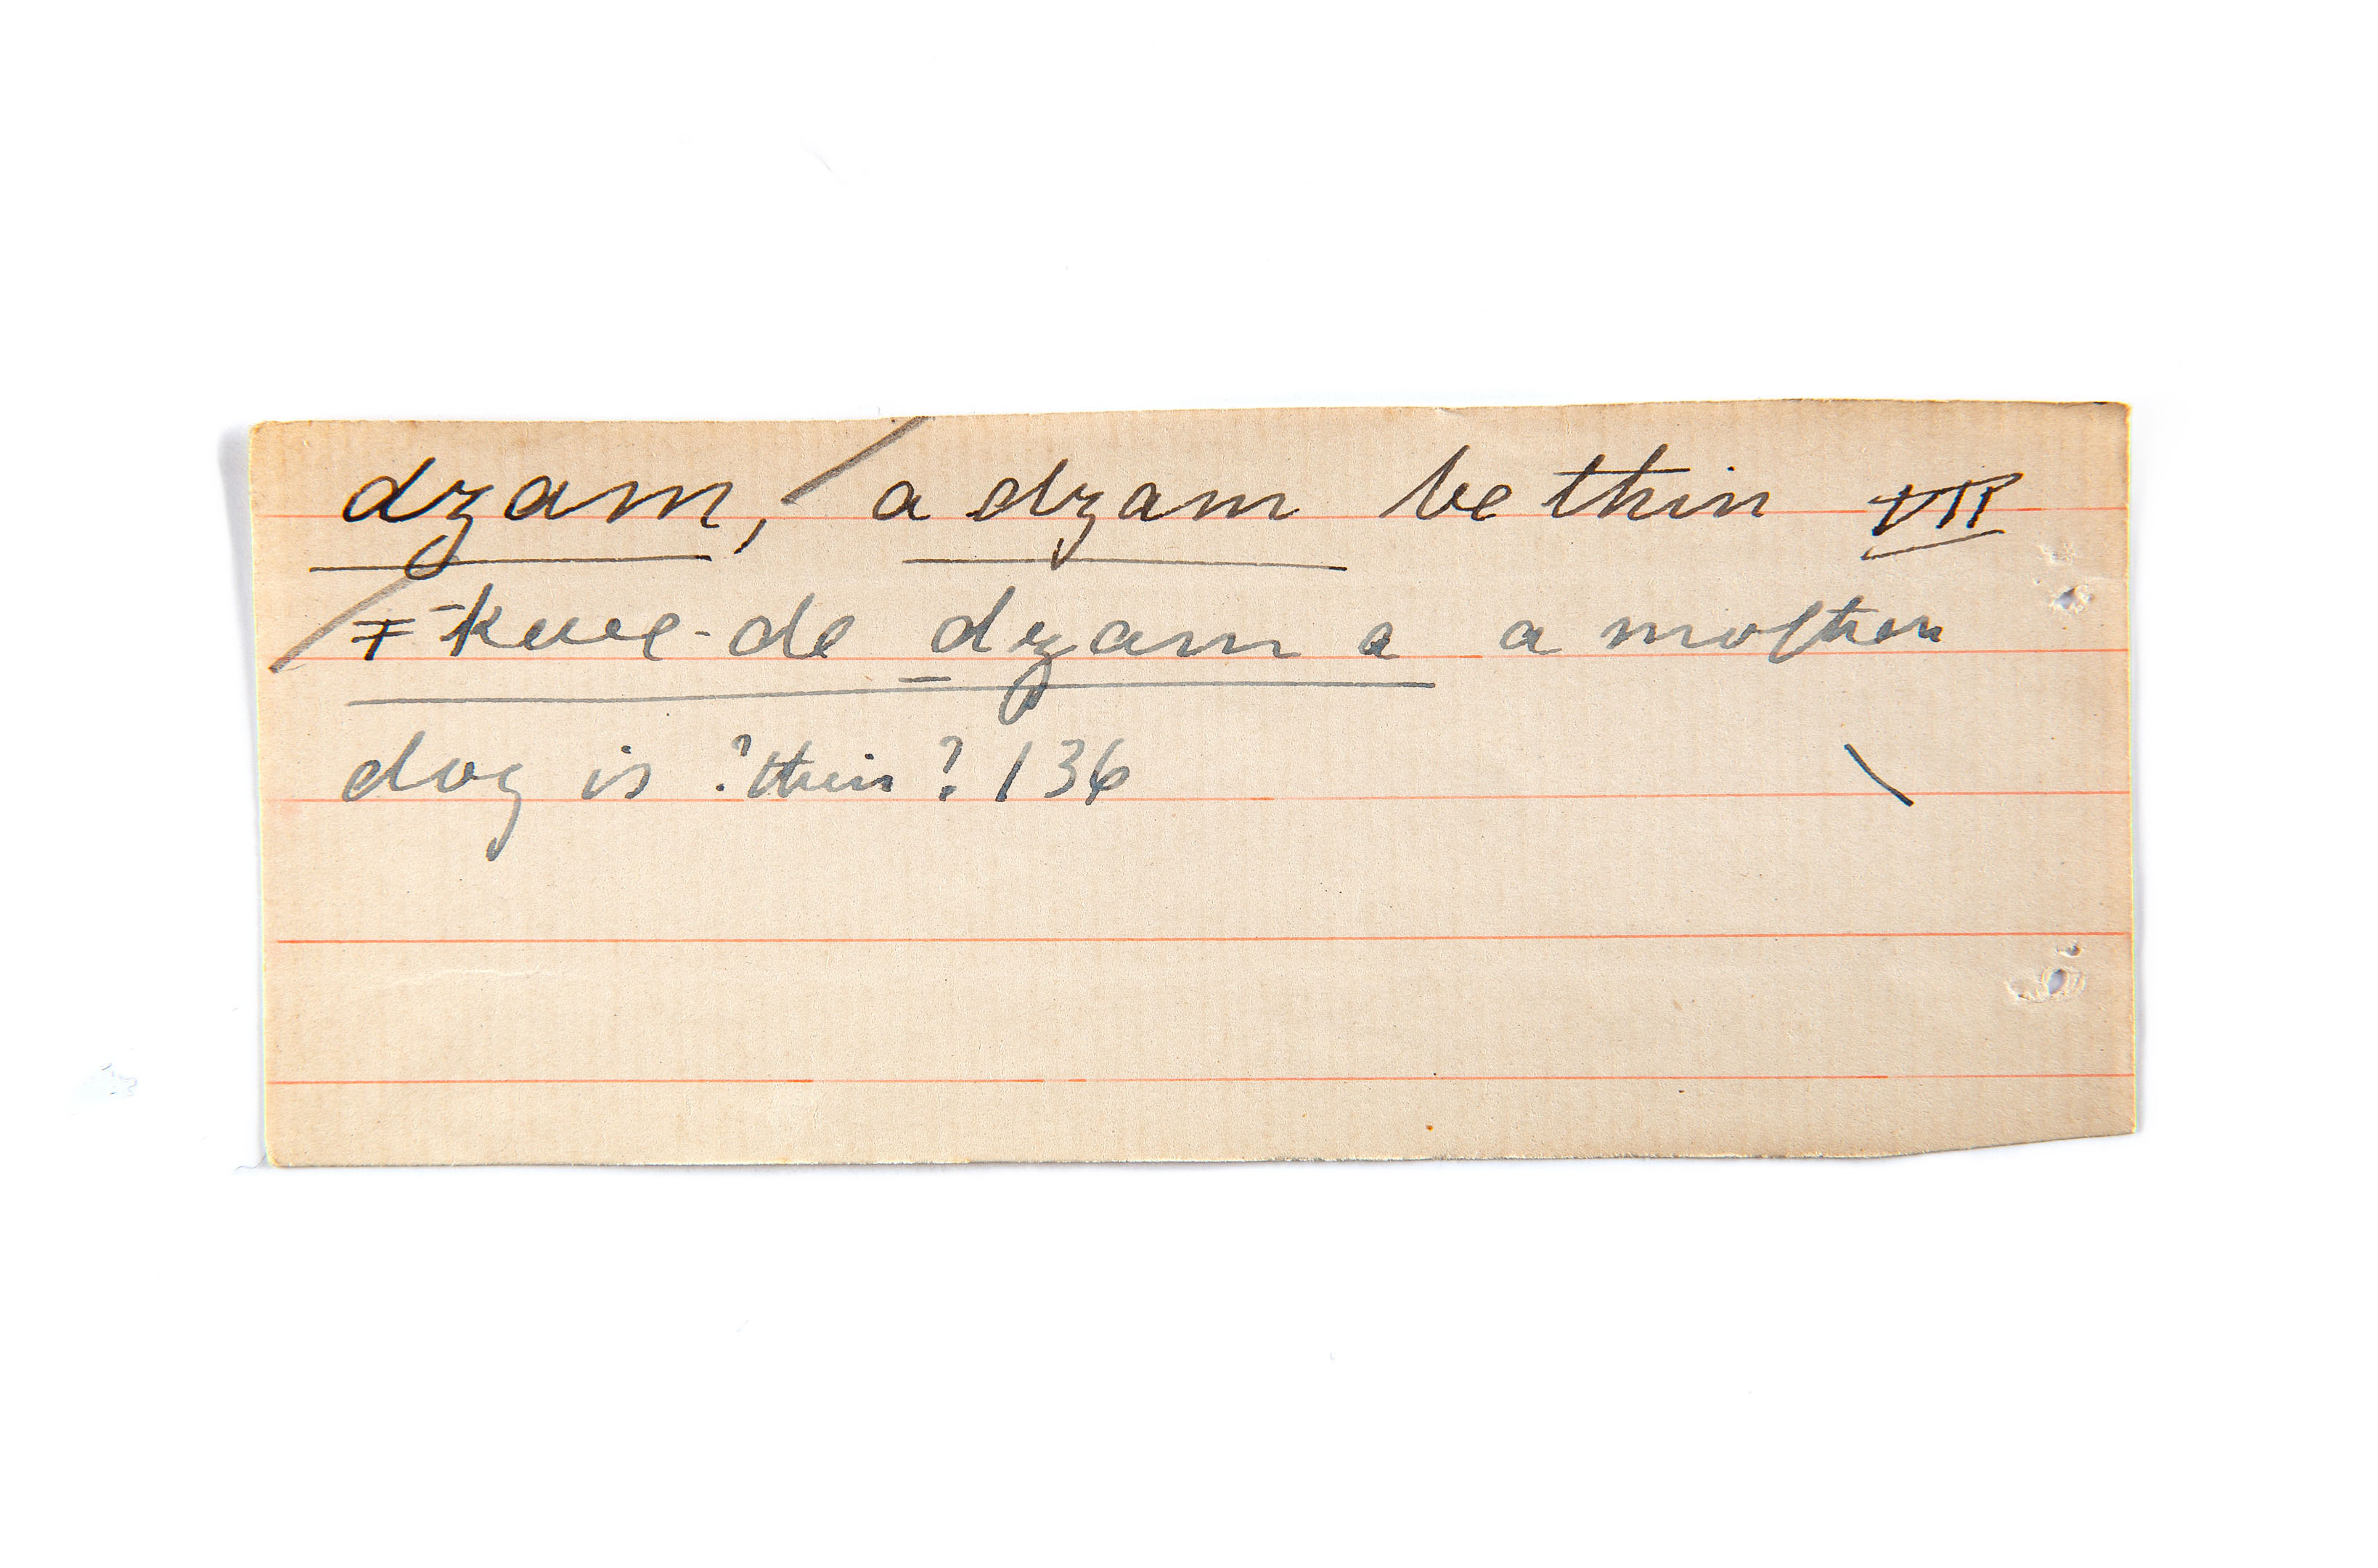 dzam, a dzam be thin VII
ǂ̄kwe-de dzam a a mother
dog is ? thin ? 136